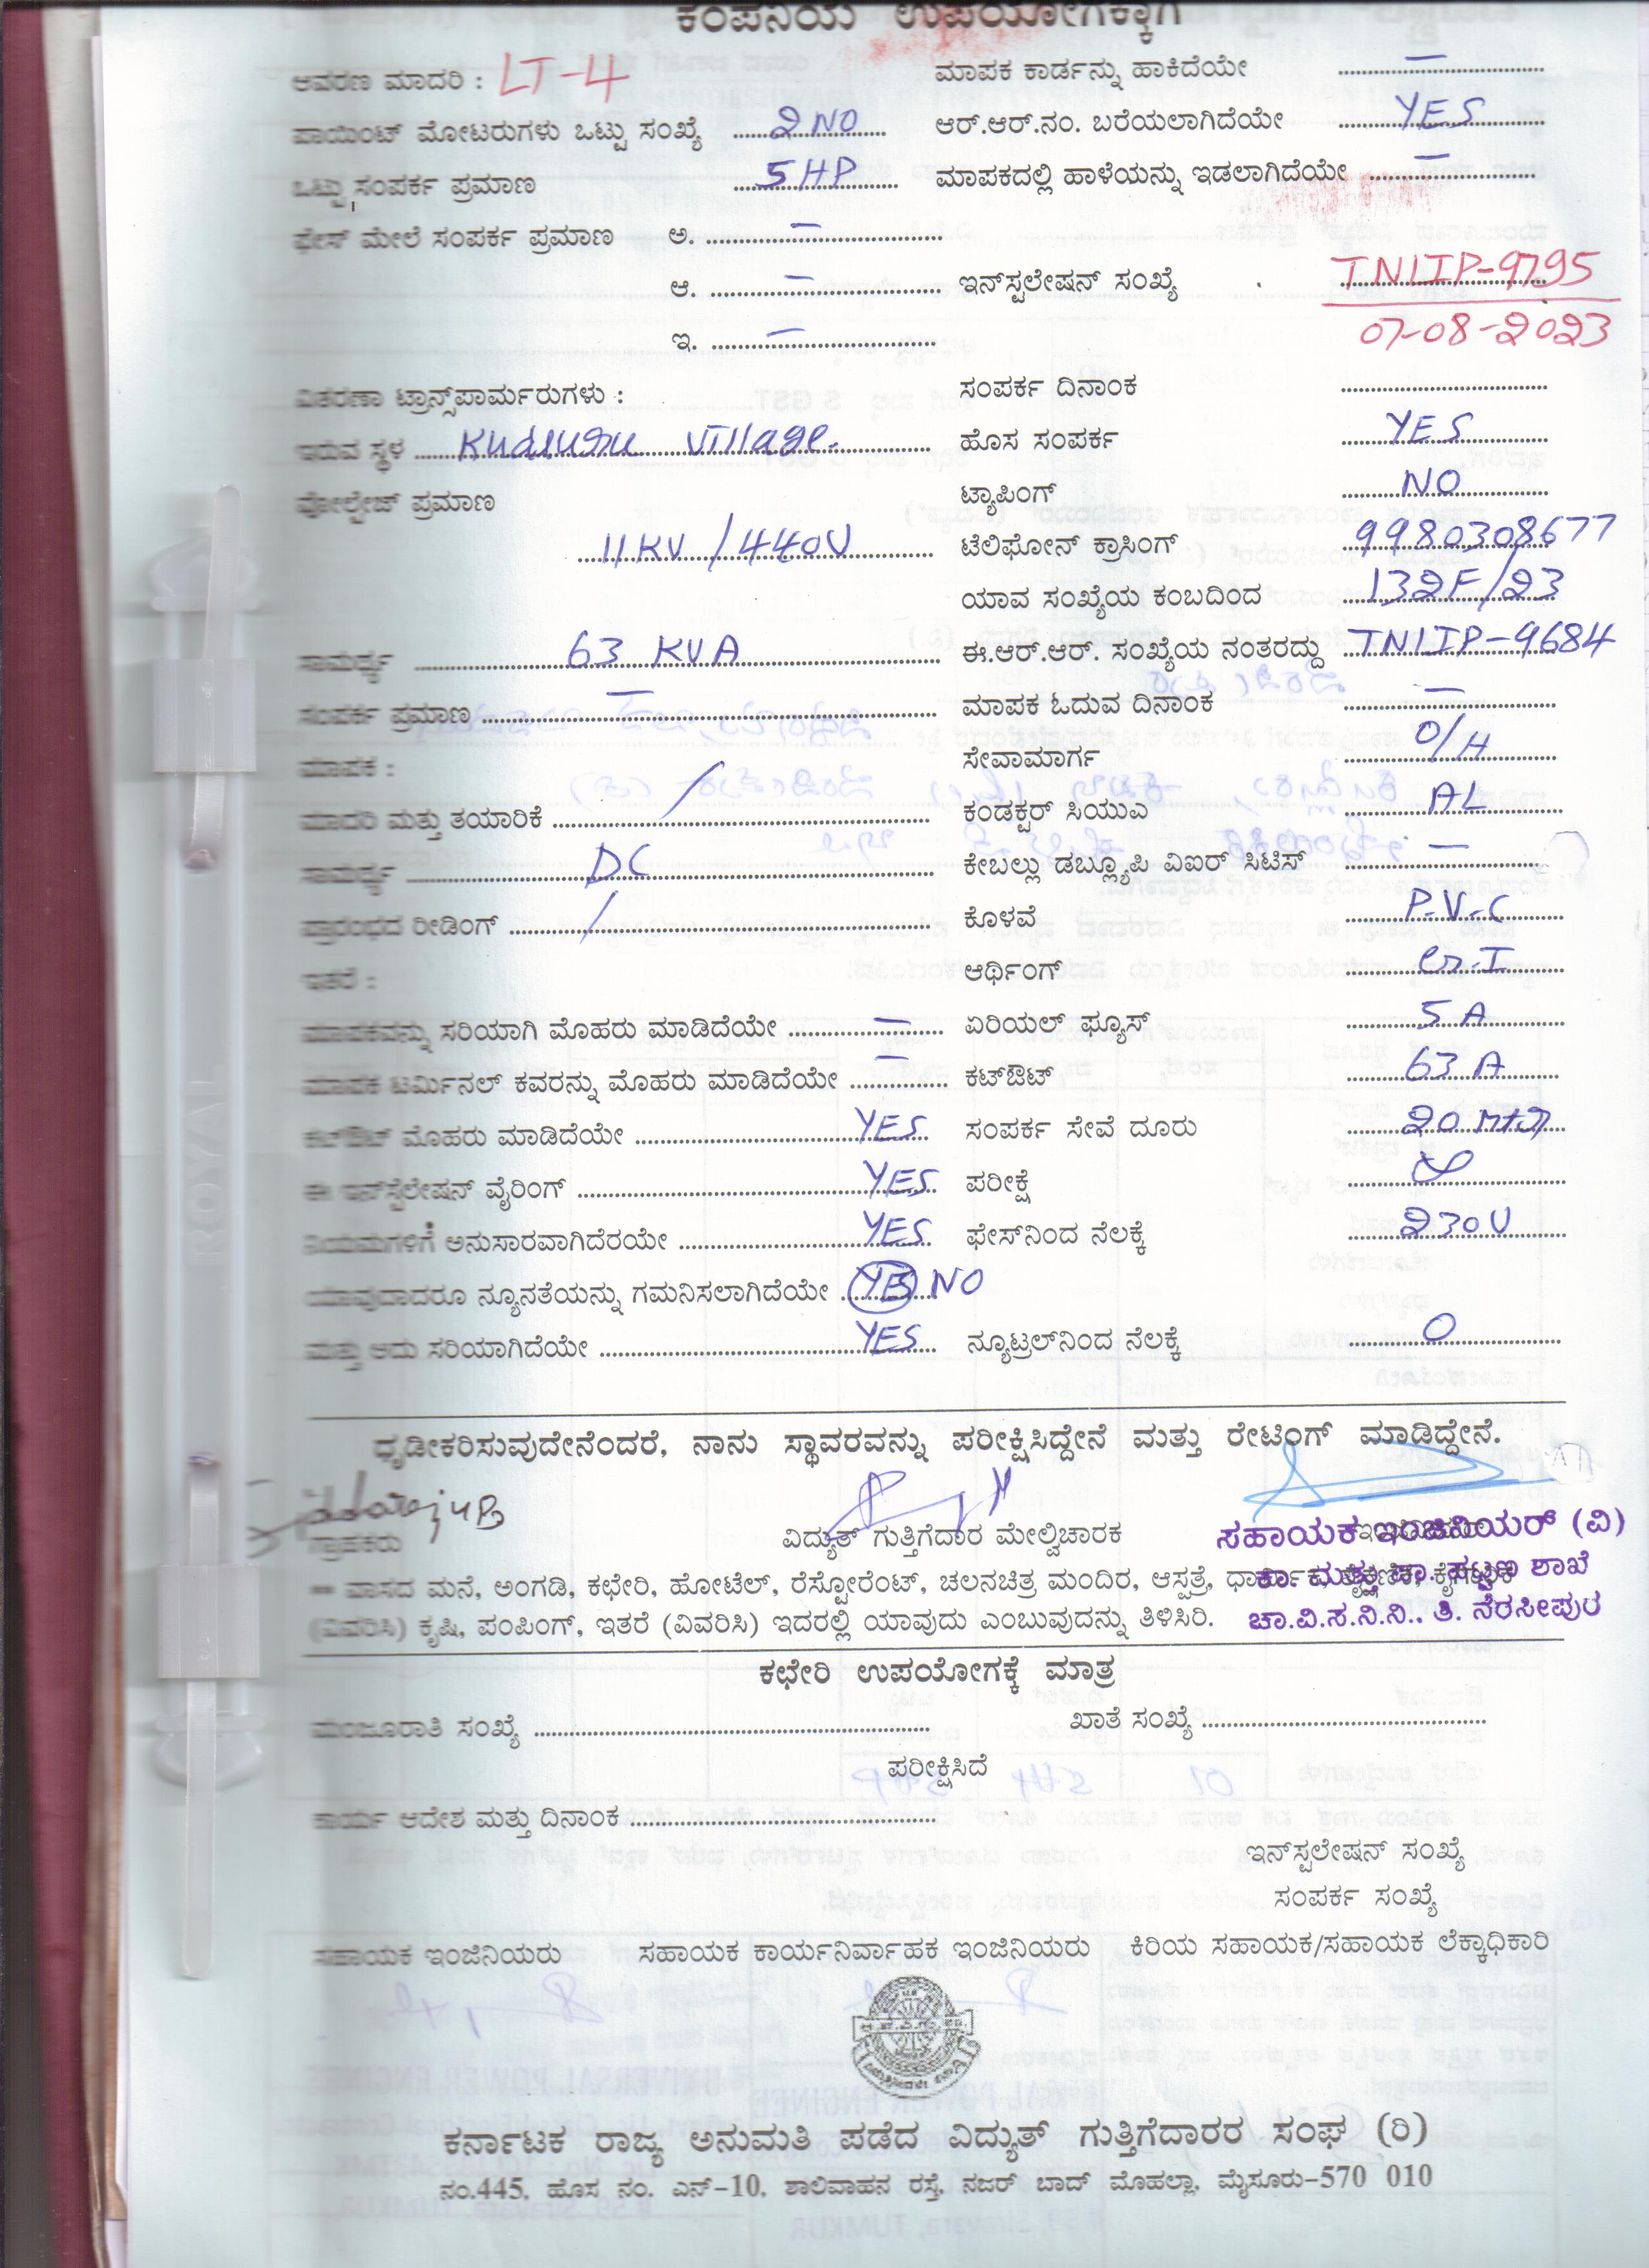 ಕಂಪನಿಯ ಉಪಯೋಗಕ್ಕಾಗಿ
ಆವರಣ ಮಾದರಿ : LT-4 ಮಾಪಕ ಕಾರ್ಡನ್ನು ಹಾಕಿದೆಯೇ —
ಪಾಯಿಂಟ್ ಮೋಟರುಗಳು ಒಟ್ಟು ಸಂಖ್ಯೆ 2 NO ಆರ್.ಆರ್.ನಂ. ಬರೆಯಲಾಗಿದೆಯೇ YES
ಒಟ್ಟು ಸಂಪರ್ಕ ಪ್ರಮಾಣ 5 HP ಮಾಪಕದಲ್ಲಿ ಹಾಳೆಯನ್ನು ಇಡಲಾಗಿದೆಯೇ —
ಫೇಸ್ ಮೇಲೆ ಸಂಪರ್ಕ ಪ್ರಮಾಣ ಅ. —
ಆ. — ಇನ್‌ಸ್ಟಲೇಷನ್ ಸಂಖ್ಯೆ TNLIP-9795
ಇ. — 07-08-2023
ವಿತರಣಾ ಟ್ರಾನ್ಸ್‌ಪಾರ್ಮರುಗಳು : ಸಂಪರ್ಕ ದಿನಾಂಕ
ಇರುವ ಸ್ಥಳ Village. ಹೊಸ ಸಂಪರ್ಕ YES
ವೋಲ್ಟೇಜ್ ಪ್ರಮಾಣ ಟ್ಯಾಪಿಂಗ್ NO
11KV / 440V ಟೆಲಿಫೋನ್ ಕ್ರಾಸಿಂಗ್ 9980308677
ಯಾವ ಸಂಖ್ಯೆಯ ಕಂಬದಿಂದ 132F/23
ಸಾಮರ್ಥ್ಯ 63 KVA ಈ.ಆರ್.ಆರ್. ಸಂಖ್ಯೆಯ ನಂತರದ್ದು TNLIP-9684
ಸಂಪರ್ಕ ಪ್ರಮಾಣ — ಮಾಪಕ ಓದುವ ದಿನಾಂಕ —
ಮಾಪಕ : ಸೇವಾಮಾರ್ಗ O/H
ಮಾದರಿ ಮತ್ತು ತಯಾರಿಕೆ / ಕಂಡಕ್ಟರ್ ಸಿಯುಎ AL
ಸಾಮರ್ಥ್ಯ DC ಕೇಬಲ್ಲು ಡಬ್ಲ್ಯೂಪಿ ವಿಐರ್ ಸಿಟಿಸ್ —
ಪ್ರಾರಂಭದ ರೀಡಿಂಗ್ / ಕೊಳವೆ P.V.C
ಇತರೆ : ಆರ್ಥಿಂಗ್ G.I
ಮಾಪಕವನ್ನು ಸರಿಯಾಗಿ ಮೊಹರು ಮಾಡಿದೆಯೇ — ಏರಿಯಲ್ ಫ್ಯೂಸ್ 5 A
ಮಾಪಕ ಟರ್ಮಿನಲ್ ಕವರನ್ನು ಮೊಹರು ಮಾಡಿದೆಯೇ — ಕಟ್‌ಔಟ್ 63 A
ಕಟ್‌ಔಟ್ ಮೊಹರು ಮಾಡಿದೆಯೇ YES ಸಂಪರ್ಕ ಸೇವೆ ದೂರು 20
ಈ ಇನ್‌ಸ್ಟೆಲೇಷನ್ ವೈರಿಂಗ್ YES ಪರೀಕ್ಷೆ
ನಿಯಮಗಳಿಗೆ ಅನುಸಾರವಾಗಿದೆರಯೇ YES ಫೇಸ್‌ನಿಂದ ನೆಲಕ್ಕೆ 230V
ಯಾವುದಾದರೂ ನ್ಯೂನತೆಯನ್ನು ಗಮನಿಸಲಾಗಿದೆಯೇ YES NO
ಮತ್ತು ಅದು ಸರಿಯಾಗಿದೆಯೇ YES ನ್ಯೂಟ್ರಲ್‌ನಿಂದ ನೆಲಕ್ಕೆ 0
ಧೃಡೀಕರಿಸುವುದೇನೆಂದರೆ, ನಾನು ಸ್ಥಾವರವನ್ನು ಪರೀಕ್ಷಿಸಿದ್ದೇನೆ ಮತ್ತು ರೇಟಿಂಗ್ ಮಾಡಿದ್ದೇನೆ.
ಗ್ರಾಹಕರು ವಿದ್ಯುತ್ ಗುತ್ತಿಗೆದಾರ ಮೇಲ್ವಿಚಾರಕ ಸಹಾಯಕ ಇಂಜಿನಿಯರ್ (ವಿ)
ವಾಸದ ಮನೆ, ಅಂಗಡಿ, ಕಛೇರಿ, ಹೋಟೆಲ್, ರೆಸ್ಟೋರೆಂಟ್, ಚಲನಚಿತ್ರ ಮಂದಿರ, ಆಸ್ಪತ್ರೆ, ಶಾಖೆ
(ವಿವರಿಸಿ) ಕೃಷಿ, ಪಂಪಿಂಗ್, ಇತರೆ (ವಿವರಿಸಿ) ಇದರಲ್ಲಿ ಯಾವುದು ಎಂಬುವುದನ್ನು ತಿಳಿಸಿರಿ. ಚಾ.ವಿ.ಸ.ನಿ.ನಿ., ತಿ. ನರಸೀಪುರ
ಕಛೇರಿ ಉಪಯೋಗಕ್ಕೆ ಮಾತ್ರ
ಮಂಜೂರಾತಿ ಸಂಖ್ಯೆ ಖಾತೆ ಸಂಖ್ಯೆ
ಪರೀಕ್ಷಿಸಿದೆ
ಕಾರ್ಯ ಆದೇಶ ಮತ್ತು ದಿನಾಂಕ
ಇನ್‌ಸ್ಪಲೇಷನ್ ಸಂಖ್ಯೆ
ಸಂಪರ್ಕ ಸಂಖ್ಯೆ
ಸಹಾಯಕ ಇಂಜಿನಿಯರು ಸಹಾಯಕ ಕಾರ್ಯನಿರ್ವಾಹಕ ಇಂಜಿನಿಯರು ಕಿರಿಯ ಸಹಾಯಕ/ಸಹಾಯಕ ಲೆಕ್ಕಾಧಿಕಾರಿ
ಕರ್ನಾಟಕ ರಾಜ್ಯ ಅನುಮತಿ ಪಡೆದ ವಿದ್ಯುತ್ ಗುತ್ತಿಗೆದಾರರ ಸಂಘ (ರಿ)
ನಂ.445, ಹೊಸ ನಂ. ಎನ್-10, ಶಾಲಿವಾಹನ ರಸ್ತೆ, ನಜರ್ ಬಾದ್ ಮೊಹಲ್ಲಾ, ಮೈಸೂರು-570 010